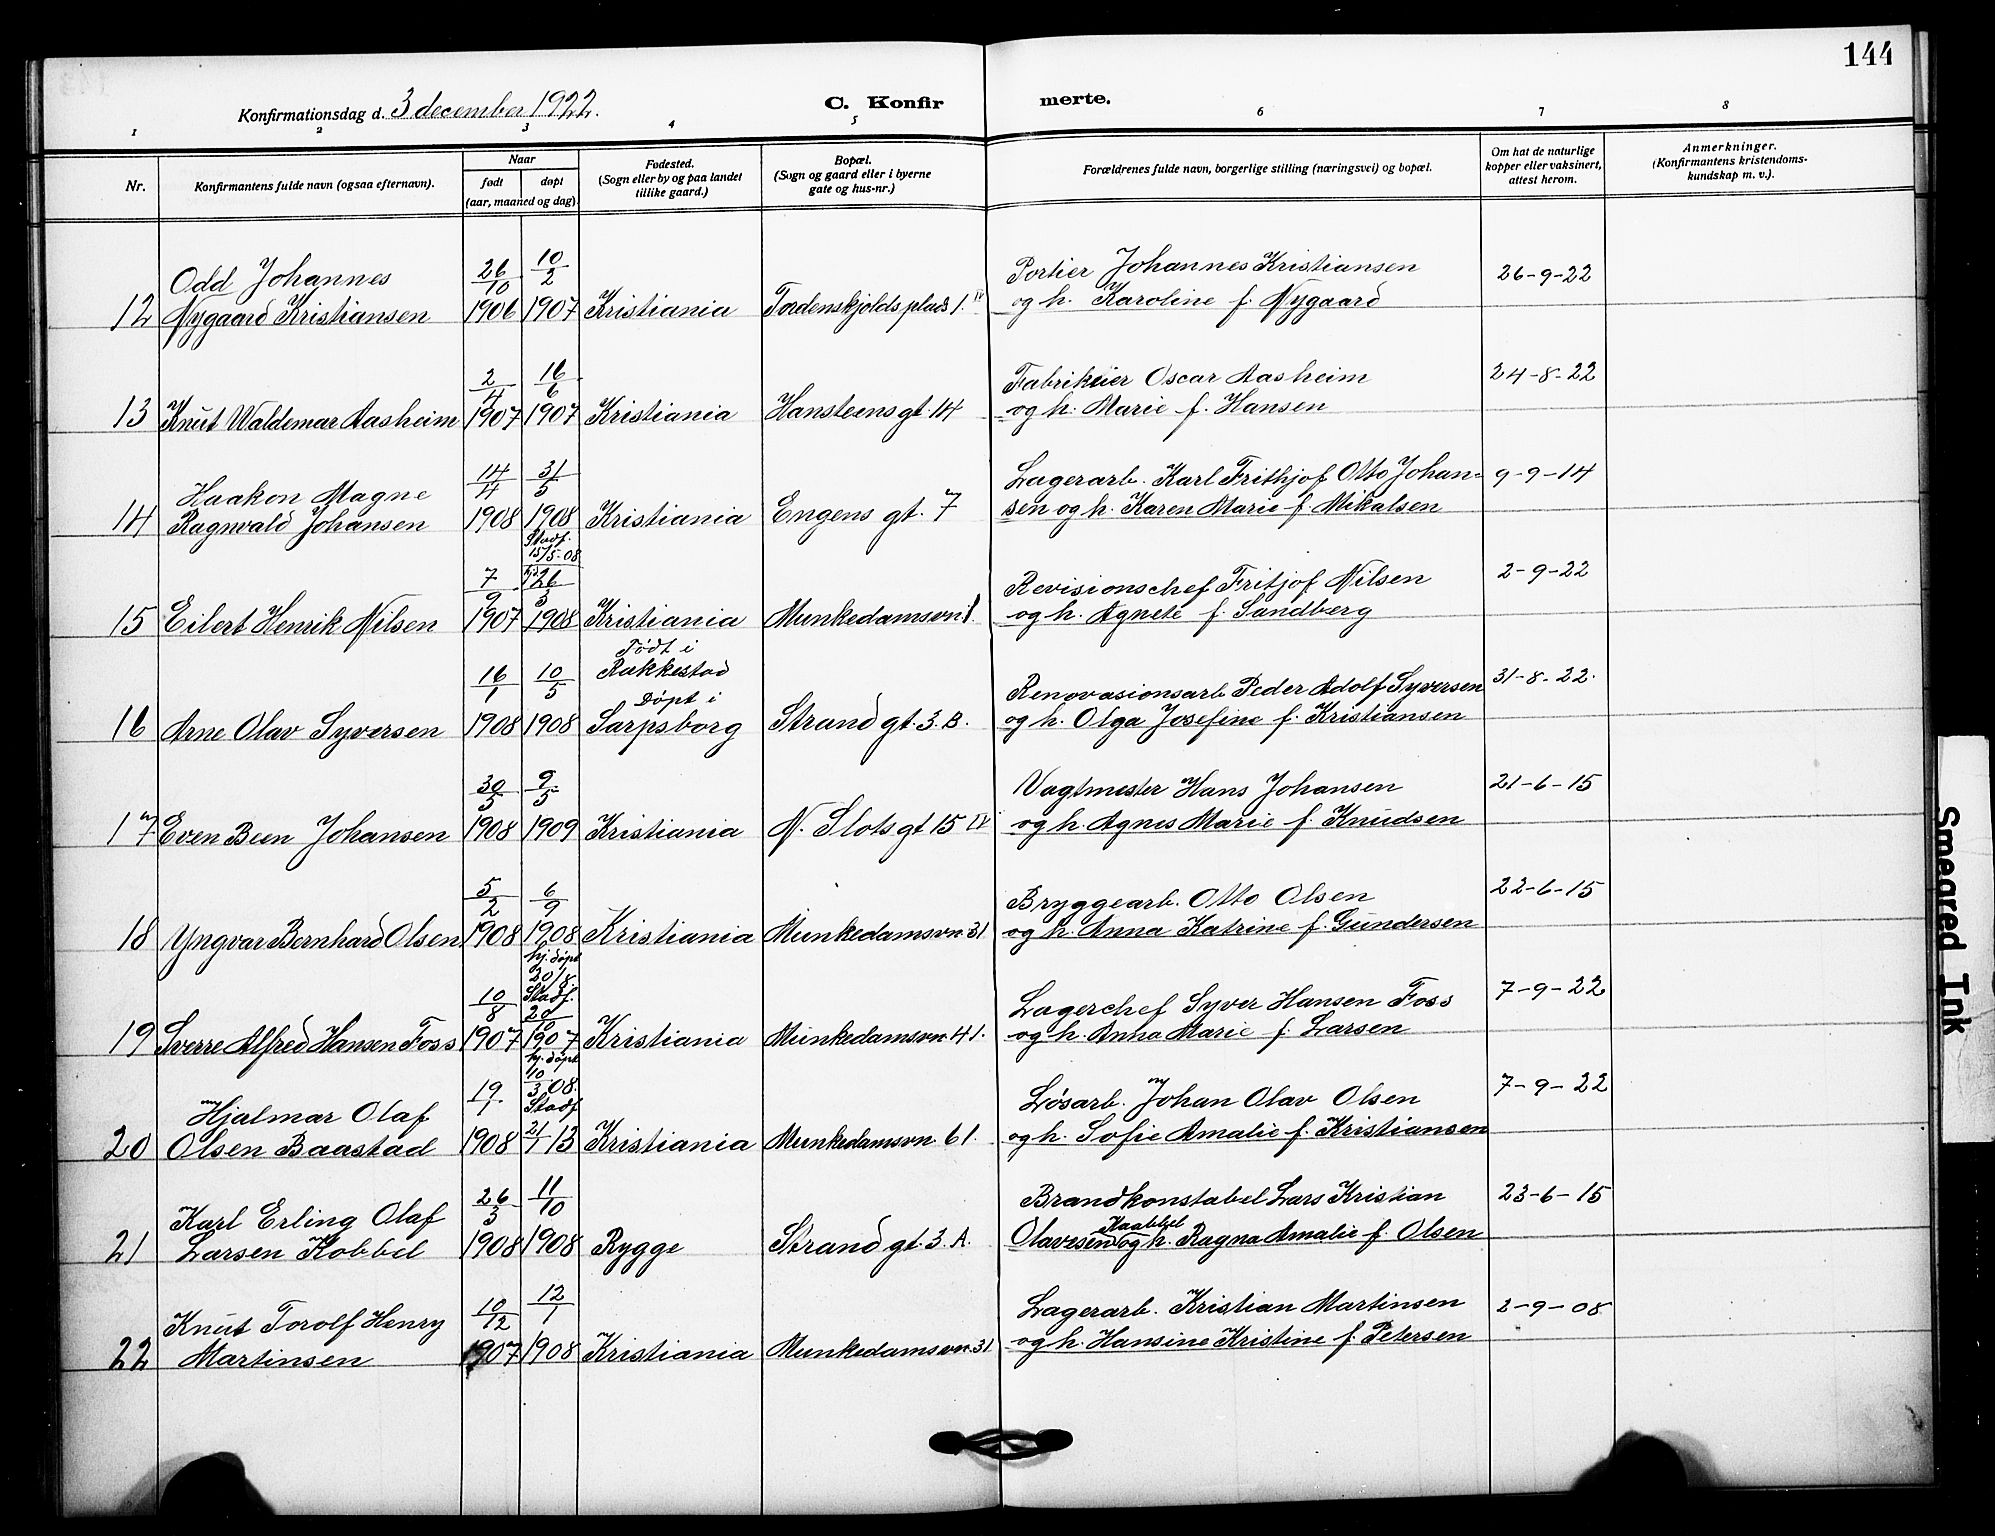 144
Konfirmationsdag d. 3 december 1922.
C. Konfirmerte.
1 2 3 4 5 6 7 8
Nr.
Konfirmantens fulde navn (ogsaa efternavn).
Naar
født døpt
(aar, maaned og dag)
Fødested.
(Sogn eller by og paa landet
tillike gaard.)
Bopæl.
(Sogn og gaard eller i byerne
gate og hus-nr.)
Forældrenes fulde navn, borgerlige stilling (næringsvei) og bopæl.
Om hat de naturlige
kopper eller vaksinert,
attest herom.
Anmerkninger.
(Konfirmantens kristendoms-
kundskap m. v.).
Odd Johannes 26/10 10/2 Portier Johannes Kristiansen 26-9-22
12 Nygaard Kristiansen 1906 1907 Kristiania Tordenskjolds plads 1. IV og h. Karoline f. Nygaard
2/4 16/6 Fabrikeier Oscar Aasheim 24-8-22
13 Knut Waldemar Aasheim 1907 1907 Kristiania Hansteens gt. 14 og h. Marie f. Hansen
Haakon Magne 14/4 31/5 Lagerarb. Karl Frithjof Otto Johan- 9-9-14
14 Ragnvald Johansen 1908 1908 Kristiania Engens gt. 7 sen og h. Karen Marie f. Mikalsen
Stadf.
15/5-08
7/9 26/3 Revisionschef Fritjof Nilsen 2-9-22
15 Eilert Henrik Nilsen 1907 1908 Kristiania Munkedamsvn 1 og h. Agnete f. Sandberg
Født i
Rakkestad
16/1 10/5 Døpt i Renovasionsarb Peder Adolf Syversen 31-8-22.
16 Arne Olav Syversen 1908 1908 Sarpsborg Strand gt. 3. B. og h. Olga Josefine f. Kristiansen
30/5 9/5 Vagtmester Hans Johansen 21-6-15
17 Even Been Johansen 1908 1909 Kristiania N. Slots gt 15 IV og h. Agnes Marie f. Knudsen
5/2 6/9 Bryggearb. Otto Olsen 22-6-15
18 Yngvar Bernhard Olsen 1908 1908 Kristiania Munkedamsvn. 31 og h. Anna Katrine f. Gundersen
hj. døpt
20/8.
Stadf.
10/8 Lagerchef Syver Hansen Foss 7-9-22
19 Sverre Alfred Hansen Foss 1907 1907 Kristiania Munkedamsvn. 41. og h. Anna Marie f. Larsen
hj. døpt
10/3 08.
Stadf
Hjalmar Olaf 19/1 Løsarb. Johan Olav Olsen 7-9-22
20 Olsen Baastad 1908 21/1 13 Kristiania Munkedamsvn. 61. og h. Sofie Amalie f. Kristiansen
Karl Erling Olaf 26/3 11/10 Brandkonstabel Lars Kristian 23-6-15
Kaabbel
21 Larsen Kobbel 1908 1908 Rygge Strand gt. 3. A. Olavesen og h. Ragna Amalie f. Olsen
Knut Torolf Henry 10/12 12/1 Lagerarb. Kristian Martinsen 2-9-08
22 Martinsen 1907 1908 Kristiania Munkedamsvn. 31 og h. Hansine Kristine f. Petersen
Smeared Ink